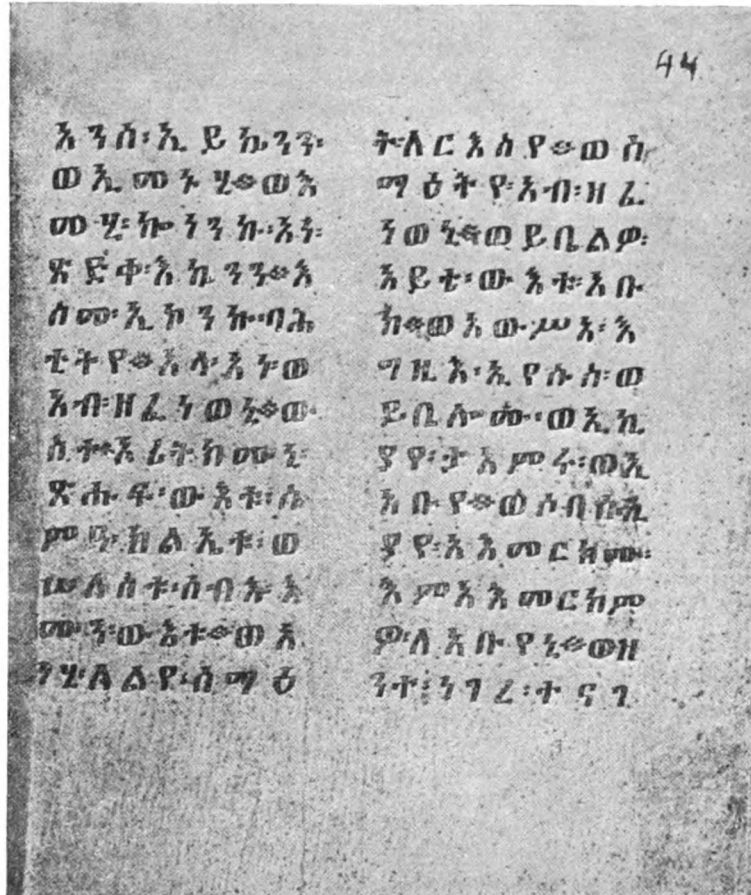 44
አንሰ፡ኢይኴንን፡
ወኢመኑሂ።ወእ
መሂ፡ኰነንኩ፡እን፡
ጽድቀ፡እኴንን።እ
ስመ፡ኢኮንኩ፡ባሕ
ቲትየ።አላ፡አነ፡ወ
አብ፡ዘፈነወኒ።ው
ስተ፡ኦሪትክሙኒ፡
ጽሑፍ፡ውእቱ፡ስ
ምዓ፡ክልኤቱ፡ወ
ሠለስቱ፡ሰብእ፡እ
ሙን፡ውእቱ።ወአ
ንሂ፡ለልየ፡ሰማዕ
ት፡ለርእስየ።ወስ
ማዕትየ፡አብ፡ዘፈ
ነወኒ።ወይቤልዎ፡
አይቴ፡ውእቱ፡አቡ
ከ።ወአውሥአ፡እ
ግዚእ፡ኢየሱስ፡ወ
ይቤሎሙ፡ወኢኪ
ያየ፡ታአምሩ፡ወኢ
አቡየ።ወሶበሰ፡ኪ
ያየ፡አእመርክሙ፡
እምአእመርክም
ዎ፡ለአቡየኒ።ወዘ
ንተ፡ነገረ፡ተናገ